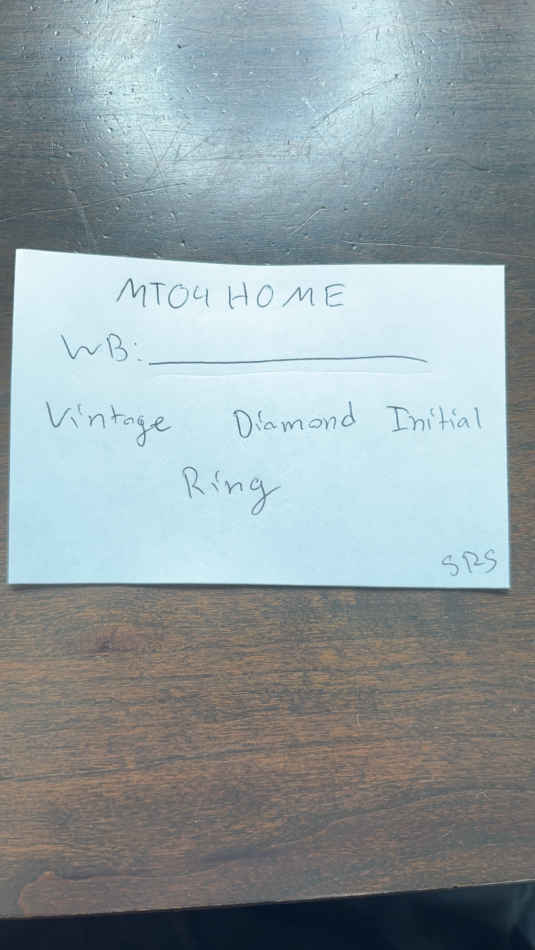 MTO4 HOME
WB: ____________
Vintage Diamond Initial
Ring
SRS